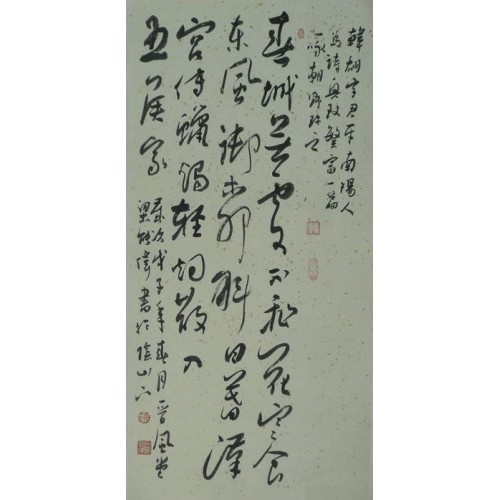 韓翃字君平南陽人
为詩興致繁富一篇
一咏朝野珍之
春城無處不飛花寒食
東風御柳斜日暮漢
宮傳蠟燭輕烟散入
五侯家
歲次戊子年春月晋風堂
梁偉書於陰山下